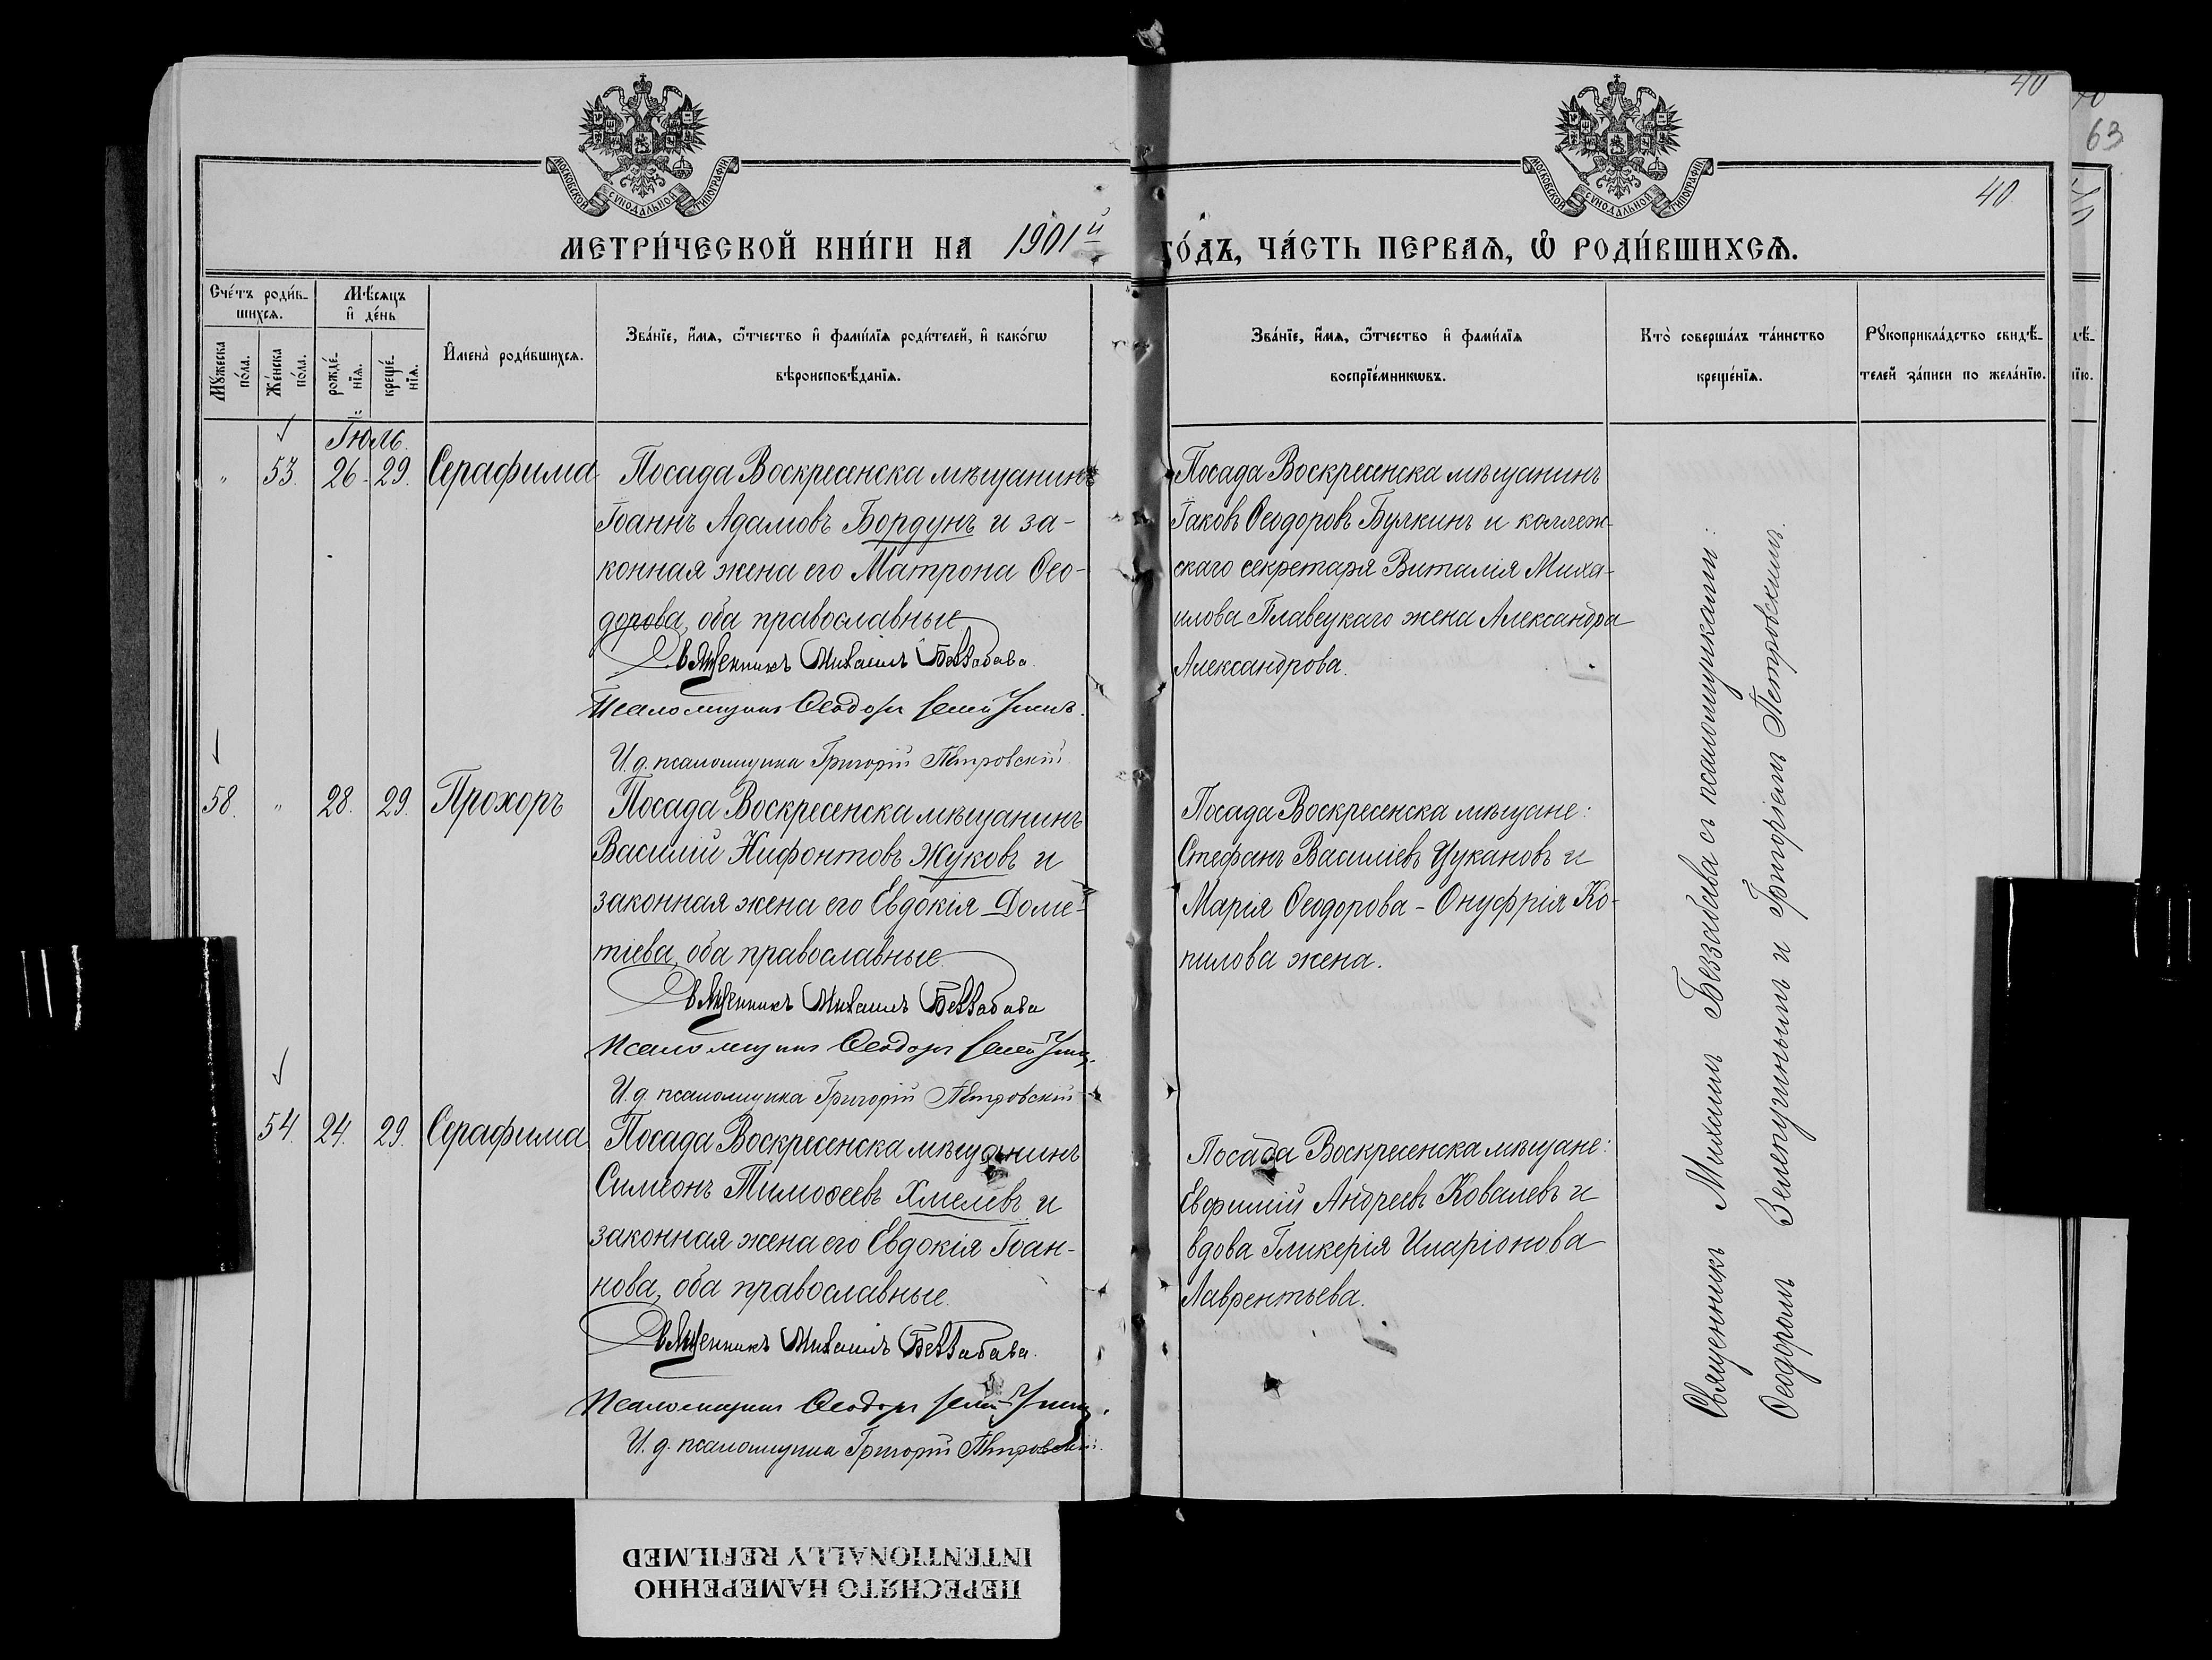 40
40
63
МОСКОВСКОЙ СѴНОДАЛЬНОЙ ТИПОГРАФІИ
МОСКОВСКОЙ СѴНОДАЛЬНОЙ ТИПОГРАФІИ
40
МЕТРИ́ЧЕСКОЙ КНИ́ГИ НА 1901й
ГО́ДЪ, ЧА́СТЬ ПЕРВАѦ, Ѡ҆ РОДИ́ВШИХСѦ.
Сче́тъ роди́в-
шихсѧ.
Мѣ́сѧцъ
и҆ де́нь
Мꙋ́жеска
по́ла.
Же́нска
по́ла.
рожде́-
нїѧ.
креще́-
нїѧ.
И҆мена̀ роди́вшихсѧ.
Зва́нїе, и҆́мѧ, ѻ҆́тчество и҆ фами́лїѧ роди́телей, и҆ како́гѡ
вѣроисповѣ́данїѧ.
Зва́нїе, и҆́мѧ, ѻ҆́тчество и҆ фами́лїѧ
воспрїе́мникѡвъ.
Кто̀ соверша́лъ та́инство
креще́нїѧ.
Рꙋкоприкла́дство свидѣ́-
телей за́писи по жела́нїю.
Іюль.
" 53. 26. 29. Серафима
Посада Воскресенска мѣщанинъ
Іоаннъ Адамовъ Бордунъ и за-
конная жена его Матрона Ѳео-
дорова, оба православные
Священникъ Михаилъ Беззабава.
Псаломщикъ Ѳеодоръ
И. д. псаломщика Григорій Петровскій
Посада Воскресенска мѣщанинъ
Іаковъ Ѳеодоровъ Булкинъ и коллеж-
скаго секретаря Виталія Миха-
илова Плавецкаго жена Александра
Александрова.
58. " 28. 29. Прохоръ
Посада Воскресенска мѣщанинъ
Василій Нифонтовъ Жуковъ и
законная жена его Евдокія Доме-
тіева, оба православные
Священникъ Михаилъ Беззабава
Псаломщикъ Ѳеодоръ
И. д. псаломщика Григорій Петровскій
Посада Воскресенска мѣщане:
Стефанъ Василіевъ Цукановъ и
Марія Ѳеодорова - Онуфрія Ко-
пилова жена.
54. 24. 29. Серафима
Посада Воскресенска мѣщанинъ
Симеонъ Тимоѳеевъ Хмелевъ и
законная жена его Евдокія Іоан-
нова, оба православные.
Священникъ Михаилъ Беззабава.
Псаломщикъ Ѳеодоръ
И. д. псаломщика Григорій Петровскій.
Посада Воскресенска мѣщане:
Евфимій Андреевъ Ковалевъ и
вдова Гликерія Иларіонова
Лаврентьева.
Священникъ Михаилъ Беззабава съ псаломщиками:
Ѳеодоромъ и Григоріемъ Петровскимъ.
ПЕРЕСНЯТО НАМЕРЕННО
INTENTIONALLY REFILMED